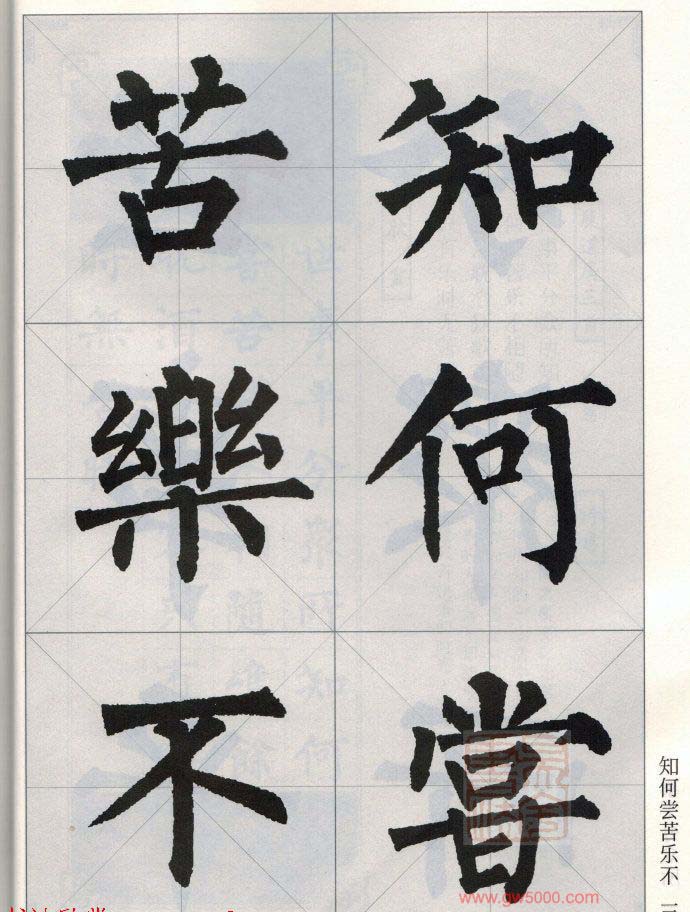 知何嘗
苦樂不
知何尝苦乐不
www.gw5000.com